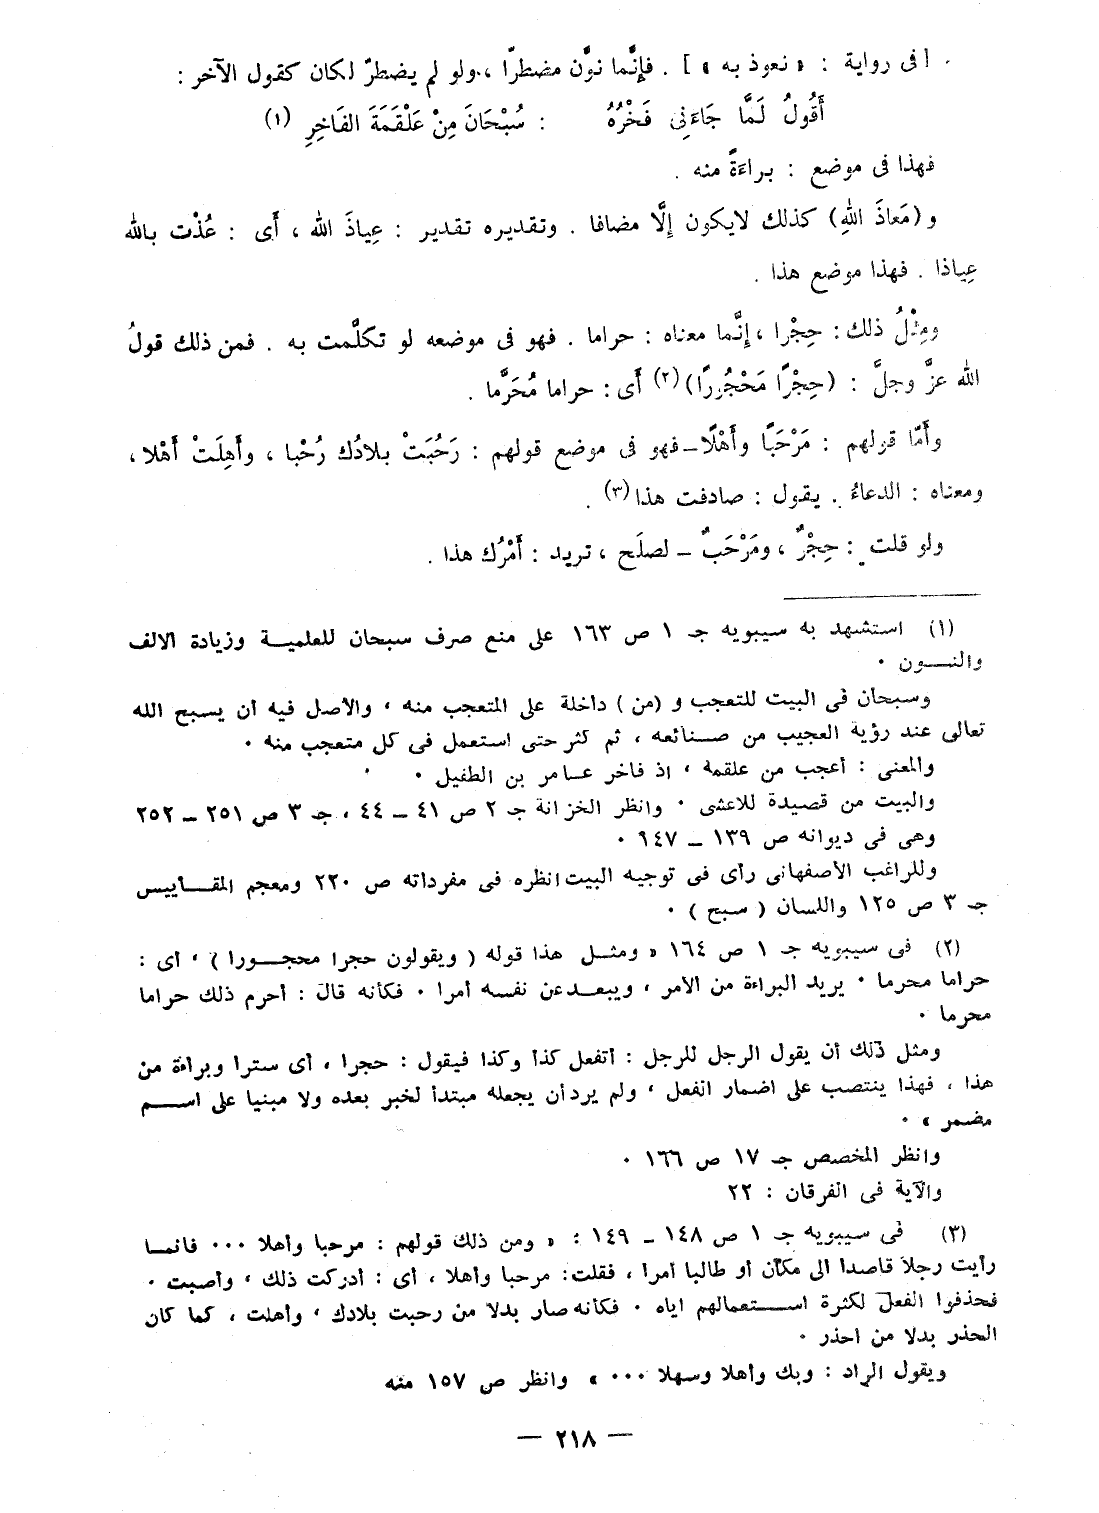 . [ فى رواية : « نعوذ به » ] . فإِنَّما نوَّن مضطرّا ، ولو لم يضطرّ لكان كقول الآخر :
أَقُولُ لَمَّا جَاءَنِى فَخْرُهُ : سُبْحَانَ مِنْ عَلْقَمَةَ الفَاخِرِ (١)
فهذا فى موضع : براءَةً منه .
و (مَعاذَ اللهِ) كذلك لايكون إلَّا مضافا . وتقديره تقدير : عِياذَ الله ، أَى : عُذْت بالله
عِياذا . فهذا موضع هذا .
ومِثْلُ ذلك : حِجْرا ، إنَّما معناه : حراما . فهو فى موضعه لو تكلَّمت به . فمن ذلك قولُ
الله عزَّ وجلَّ : (حِجْرًا مَحْجُورًا) (٢) أَى : حراما مُحَرَّما .
وأَمَّا قولهم : مَرْحَبًا وأَهْلًا ــ فهو فى موضع قولهم : رَحُبَتْ بلادُك رُحْبا ، وأَهِلَتْ أَهْلا ،
ومعناه : الدعاءُ . يقول : صادفت هذا (٣) .
ولو قلت : حِجْرٌ ، ومَرْحَبٌ ــ لصلَح ، تريد : أَمْرُك هذا .
(١) استشهد به سيبويه جـ ١ ص ١٦٣ على منع صرف سبحان للعلميـة وزيادة الالف
والنـــون ٠
وسبحان فى البيت للتعجب و (من) داخلة على المتعجب منه ، والأصل فيه أن يسبح الله
تعالى عند رؤية العجيب من صـنائعه ، ثم كثر حتى استعمل فى كل متعجب منه ٠
والمعنى : أعجب من علقمة ، اذ فاخر عـامر بن الطفيل ٠
والبيت من قصيدة للاعشى ٠ وانظر الخزانة جـ ٢ ص ٤١ ــ ٤٤ ، جـ ٣ ص ٢٥١ ــ ٢٥٢
وهى فى ديوانه ص ١٣٩ ــ ٩٤٧ ٠
وللراغب الأصفهانى رأى فى توجيه البيت انظره فى مفرداته ص ٢٢٠ ومعجم المقـاييس
جـ ٣ ص ١٢٥ واللسان ( سبح ) ٠
(٢) فى سيبويه جـ ١ ص ١٦٤ « ومثـل هذا قوله ( ويقولون حجرا محجـورا ) ، أى :
حراما محرما ٠ يريد البراءة من الأمر ، ويبعـد عن نفسه أمرا ٠ فكأنه قال : أحرم ذلك حراما
محرما ٠
ومثل ذلك أن يقول الرجل للرجل : أتفعل كذا وكذا فيقول : حجرا ، أى سترا وبراءة من
هذا ، فهذا ينتصب على اضمار الفعل ، ولم يرد أن يجعله مبتدأ لخبر بعده ولا مبنيا على اســم
مضمر » ٠
وانظر المخصص جـ ١٧ ص ١٦٦ ٠
والآية فى الفرقان : ٢٢
(٣) فى سيبويه جـ ١ ص ١٤٨ ــ ١٤٩ : « ومن ذلك قولهم : مرحبا وأهلا ٠٠٠ فانمـا
رأيت رجلا قاصدا الى مكان أو طالبا أمرا ، فقلت : مرحبا وأهلا ، أى : أدركت ذلك ، وأصبت ٠
فحذفوا الفعل لكثرة اسـتعمالهم اياه ٠ فكأنه صار بدلا من رحبت بلادك ، وأهلت ، كما كان
الحذر بدلا من احذر ٠
ويقول الراد : وبك وأهلا وسهلا ٠٠٠ » وانظر ص ١٥٧ منه
— ٢١٨ —